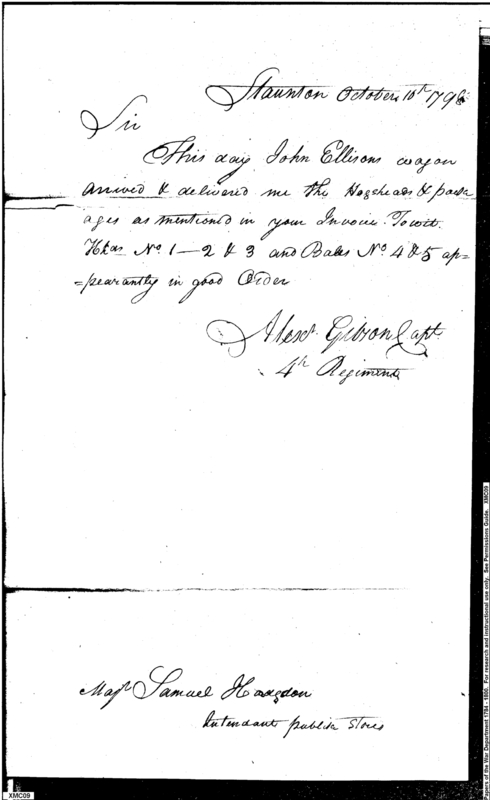 Staunton October 10th 1798
Sir
This day John Ellisons wagon
arrived & delivered me the Hogsheads & pack
ages as mentioned in your Invoice. Towit.
Hhds No. 1—2 & 3 and Bales No. 4 & 5 ap=
=pearantly in good Order
Alexr. Gibson Capt.
4th Regiment
Majr. Samuel Hodgdon
Intendant publick Stores
XMC09
Papers of the War Department 1784 - 1800. For research and instructional use only. See Permissions Guide. XMC09